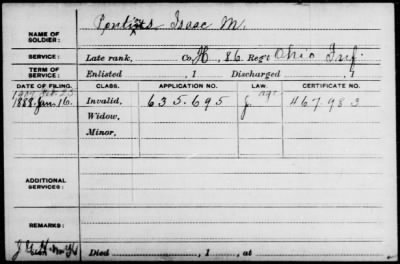 NAME OF SOLDIER: Isaac M.
SERVICE: Late rank, Co. H, 86 Reg't Ohio Inf.
TERM OF SERVICE: Enlisted , 1 Discharged , 1
DATE OF FILING. CLASS. APPLICATION NO. LAW. CERTIFICATE NO.
1888. Jan. 16. Invalid, 635.695 467983
Widow,
Minor,
ADDITIONAL SERVICES:
REMARKS:
Died , 1 , at